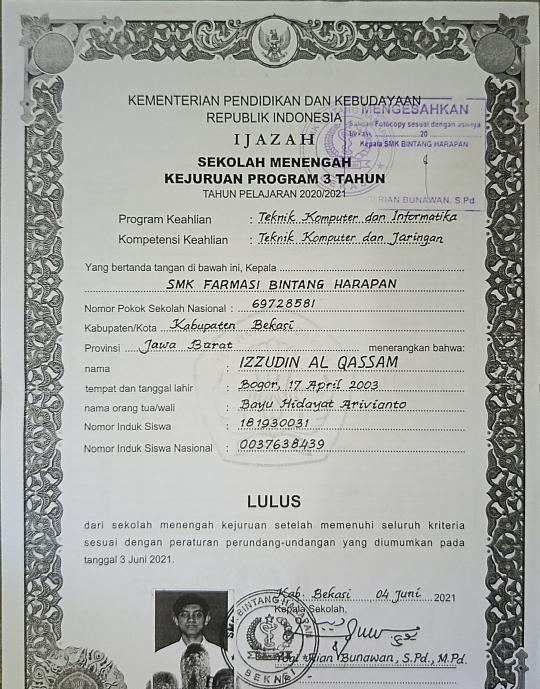 KEMENTERIAN PENDIDIKAN DAN KEBUDAYAAN
REPUBLIK INDONESIA
IJAZAH
SEKOLAH MENENGAH
KEJURUAN PROGRAM 3 TAHUN
TAHUN PELAJARAN 2020/2021
MENGESAHKAN
Fotocopy sesuai dengan aslinya
20
Kepala SMK BINTANG HARAPAN
RIAN BUNAWAN, S.Pd
Program Keahlian : Teknik Komputer dan Informatika
Kompetensi Keahlian : Teknik Komputer dan Jaringan
Yang bertanda tangan di bawah ini, Kepala
SMK FARMASI BINTANG HARAPAN
Nomor Pokok Sekolah Nasional : 69728581
Kabupaten/Kota Kabupaten Bekasi
Provinsi Jawa Barat menerangkan bahwa:
nama : IZZUDIN AL QASSAM
tempat dan tanggal lahir : Bogor, 17 April 2003
nama orang tua/wali : Bayu Hidayat Arivianto
Nomor Induk Siswa : 181930031
Nomor Induk Siswa Nasional : 0037638439
LULUS
dari sekolah menengah kejuruan setelah memenuhi seluruh kriteria
sesuai dengan peraturan perundang-undangan yang diumumkan pada
tanggal 3 Juni 2021.
Kab. Bekasi 04 Juni 2021
Kepala Sekolah,
BINTANG HARAPAN
Rian Bunawan, S.Pd., M.Pd.